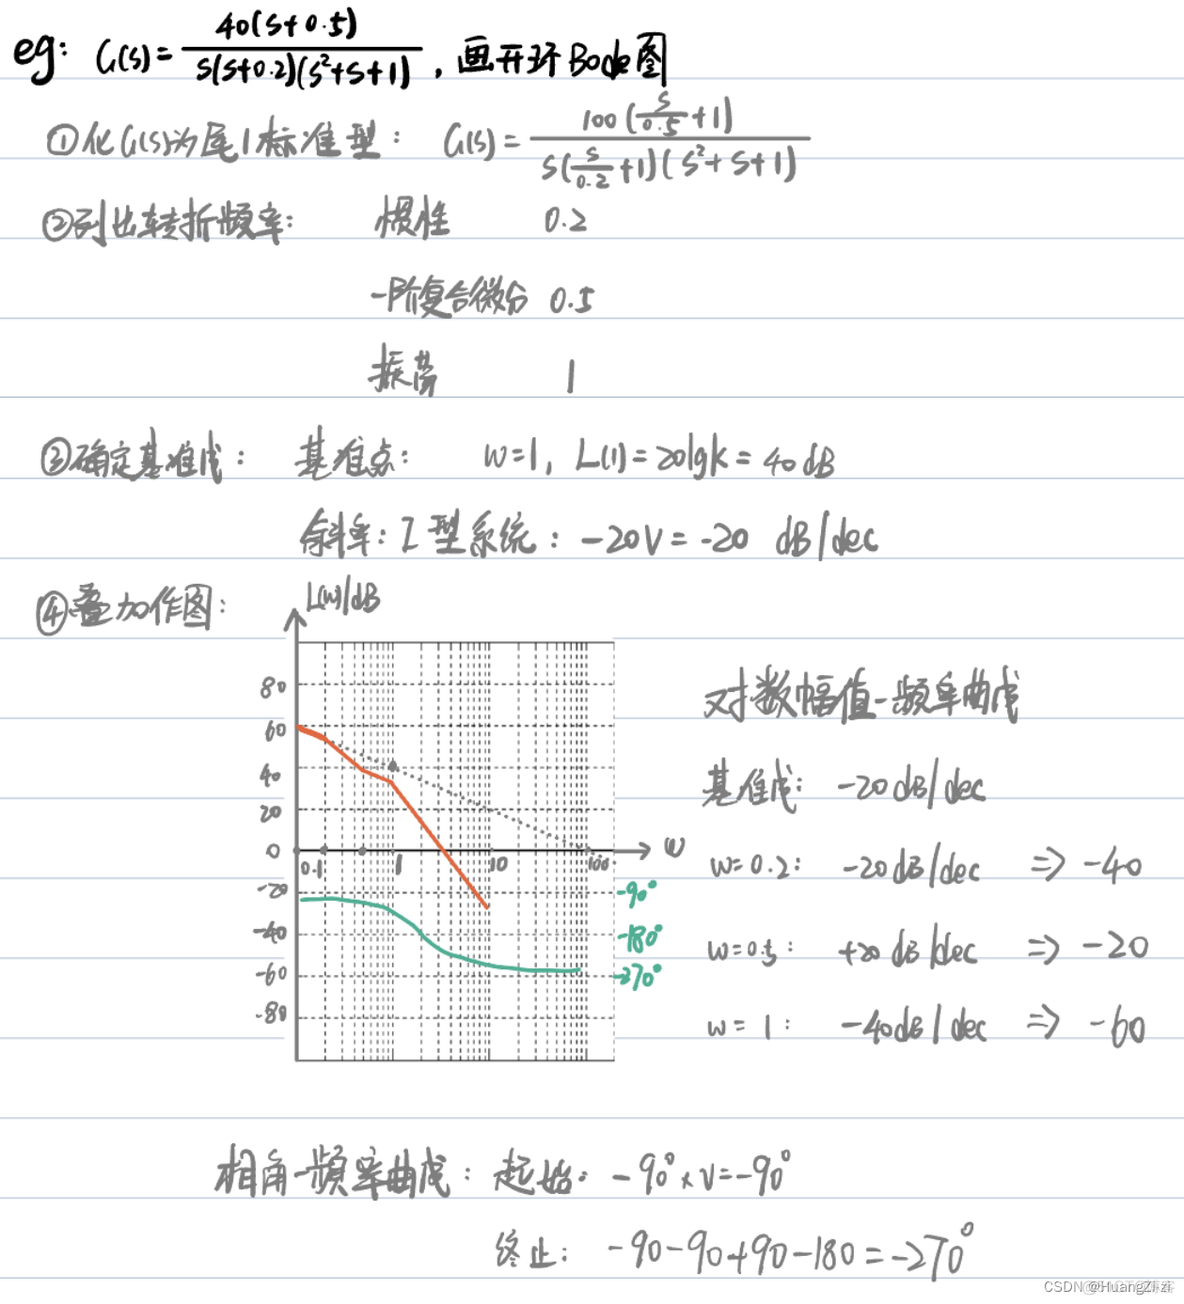 eg: G(s)= 40(s+0.5) / s(s+0.2)(s²+s+1) , 画开环Bode图
①化G(s)为尾1标准型: G(s)= 100(s/0.5+1) / s(s/0.2+1)(s²+s+1)
②列出转折频率: 惯性 0.2
一阶复合微分 0.5
振荡 1
③确定基准线: 基准点: w=1, L(1)=20lgk=40dB
斜率: I型系统: -20V=-20 dB/dec
④叠加作图: L(w)/dB
80
60
40
20
0 0.1 1 10 100 ω
-20
-40
-60
-80
-90°
-180°
-270°
对数幅值-频率曲线
基准线: -20dB/dec
w=0.2: -20dB/dec => -40
w=0.5: +20dB/dec => -20
w=1: -40dB/dec => -60
相角-频率曲线: 起始: -90°×V=-90°
终止: -90-90+90-180=-270°